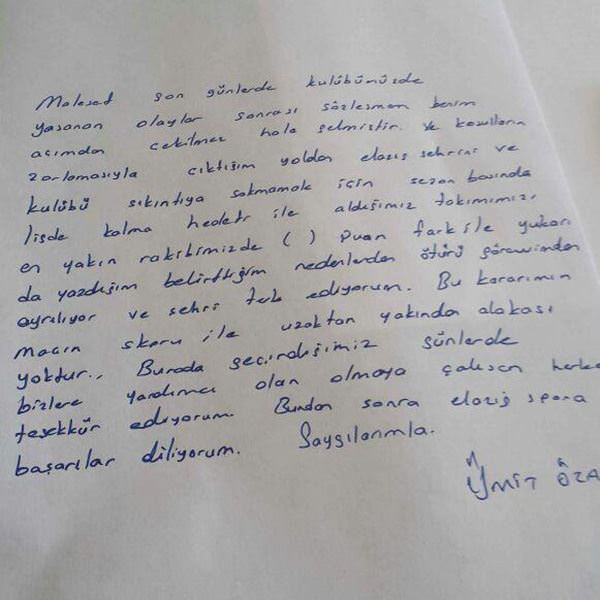 Malesef son günlerde kulübünüzde
yaşanan olaylar sonrası sözleşmem benim
açımdan çekilmez hale gelmiştir. Ve koşulların
zorlamasıyla çıktığım yoldan elazığ şehrini ve
kulübü sıkıntıya sokmamak için sezon başında
ligde kalma hedefi ile aldığımız takımımızı
en yakın rakibimizde ( ) puan fark ile yukarı
da yazdığım belirttiğim nedenlerden ötürü görevimden
ayrılıyor ve şehri terk ediyorum. Bu kararımın
maçın skoru ile uzaktan yakından alakası
yoktur., Burada geçirdiğimiz günlerde
bizlere yardımcı olan olmaya çalışan herke
teşekkür ediyorum. Bundan sonra elazığ spora
başarılar diliyorum. Saygılarımla.
ÜMİT ÖZA